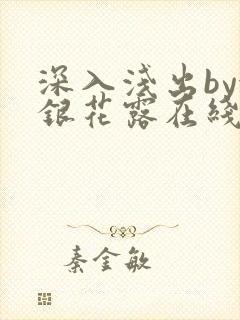 深入浅出by
銀花露在线
秦金敏